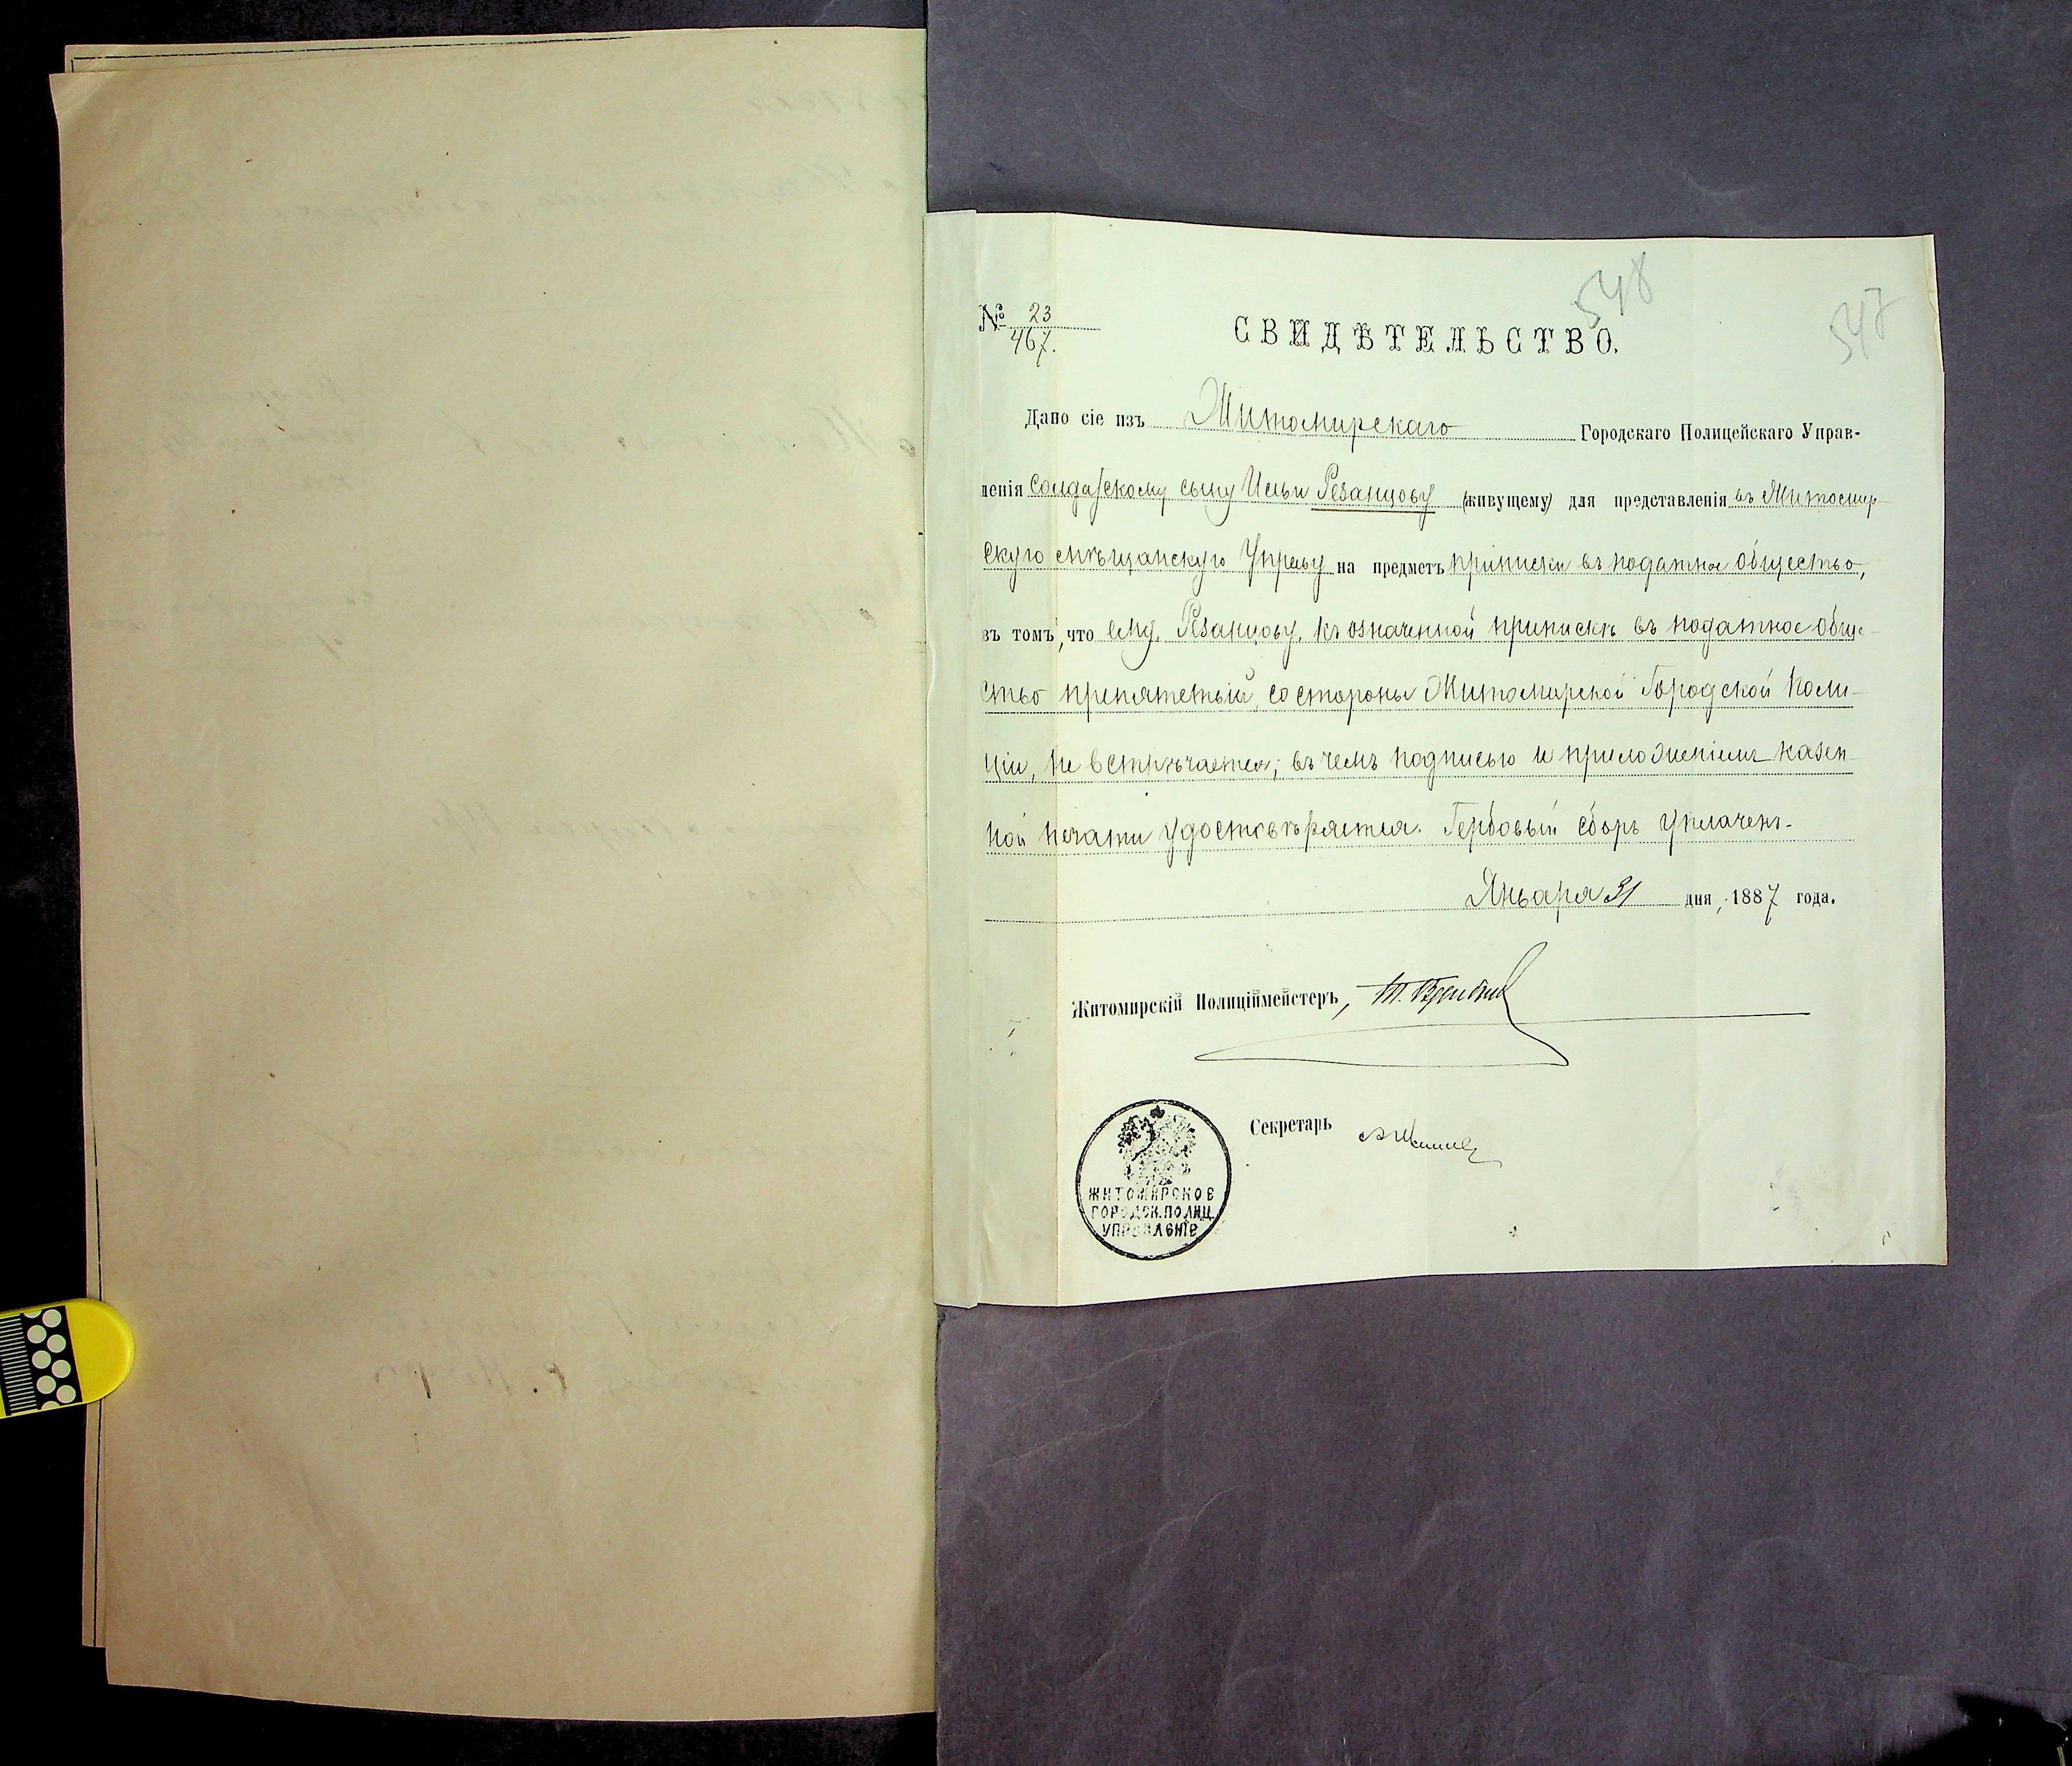 548
547
№ 23
467.
СВИДѢТЕЛЬСТВО.
Дано сіе изъ Житомирскаго Городскаго Полицейскаго Управ-
ленія Солдатскому сыну Ильи Резанцову (живущему) для представленія въ Житомир-
скую мѣщанскую Управу на предметъ приписки въ податное общество,
въ томъ, что ему, Резанцову, къ означенной припискѣ въ податное обще-
ство препятствій, со стороны Житомирской Городской Поли-
ціи, не встрѣчается; въ чемъ подписью и приложеніемъ казен-
ной печати удостовѣряется. Гербовый сборъ уплаченъ.
Января 31 дня, 1887 года.
Житомирскій Полиціймейстеръ,
Секретарь
ЖИТОМИРСКОЕ
ГОРОДСК. ПОЛИЦ.
УПРАВЛЕНІЕ